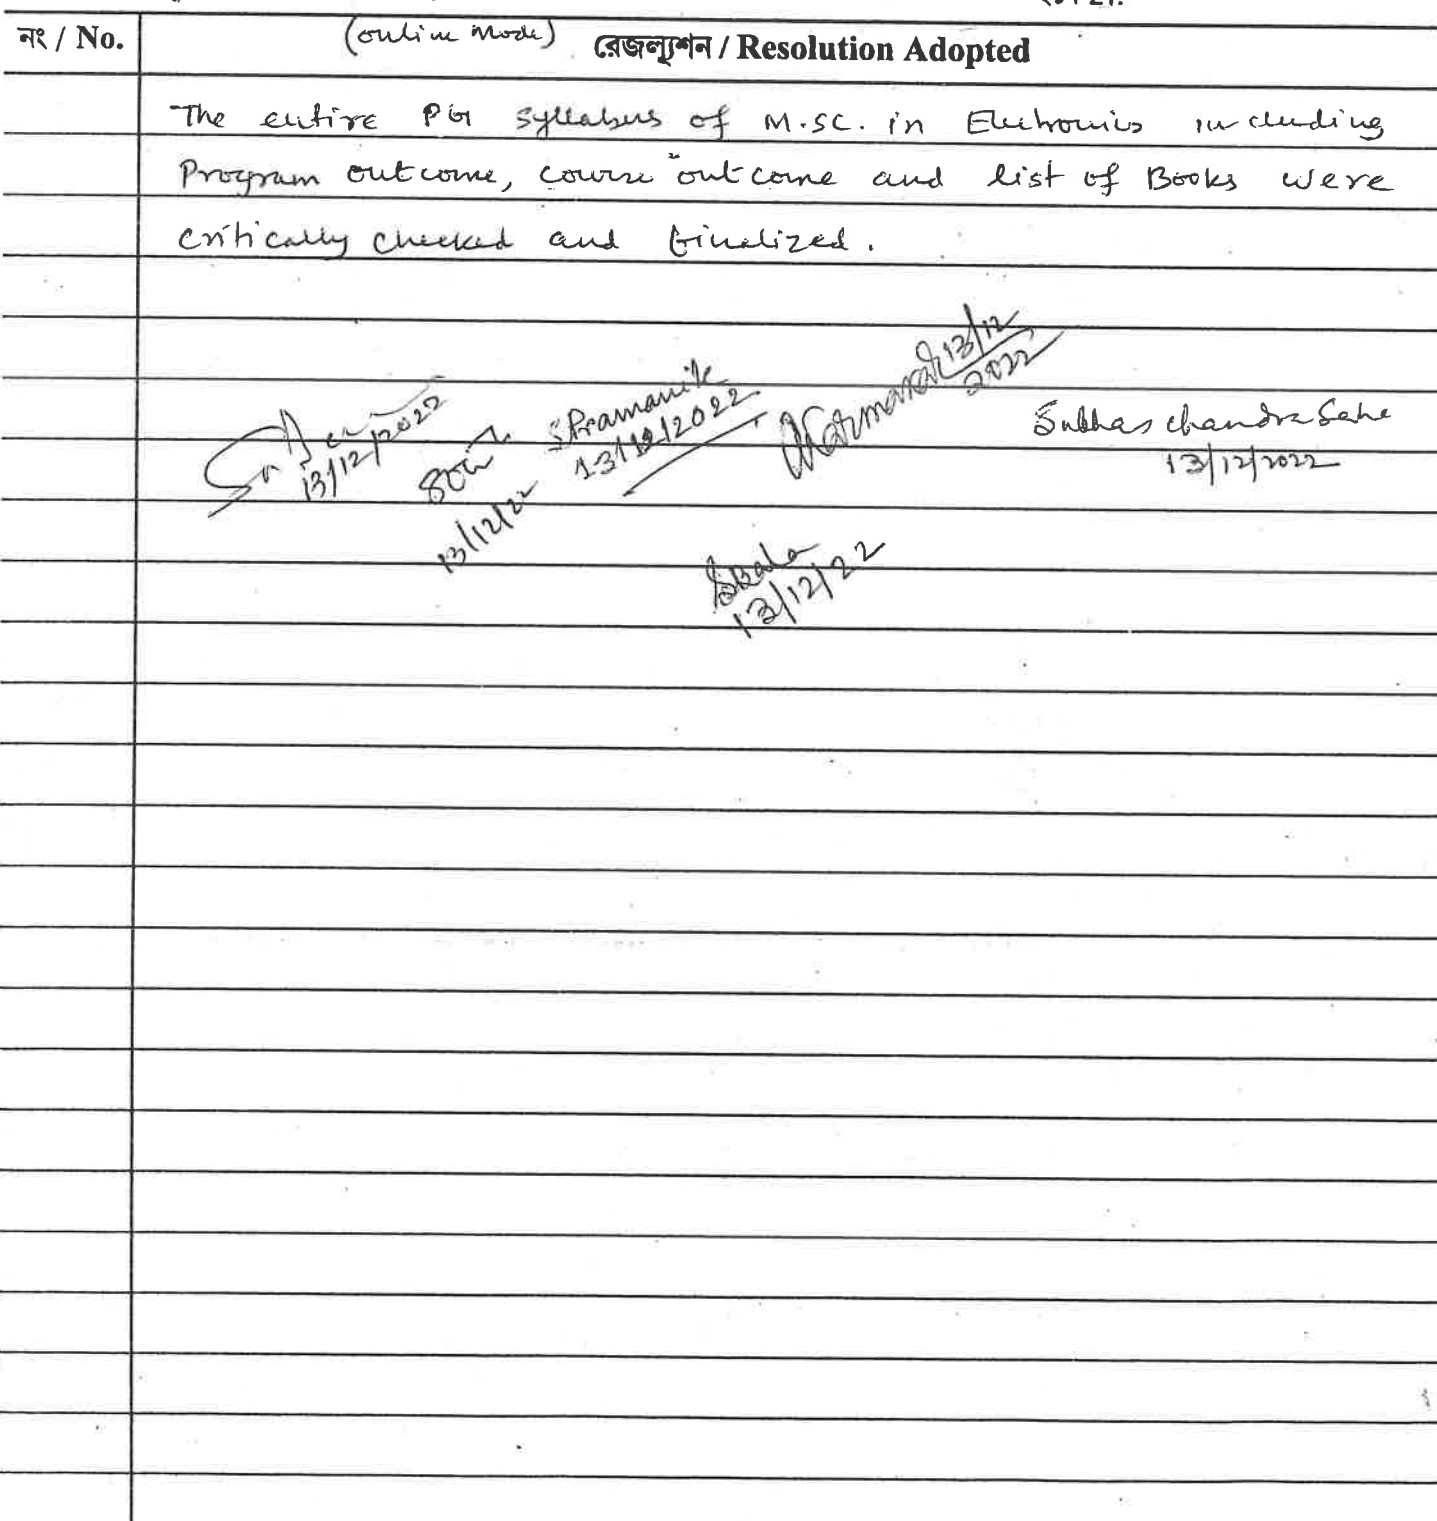 নং / No.
(online Mode) রেজল্যুশন / Resolution Adopted
The entire PG syllabus of M.SC. in Electronics including
Program outcome, course outcome and list of Books were
critically checked and finalized.
13/12/2022
13/12/22
SPramanik
13/12/2022
NKarmakar 13/12
2022
Subhas chandra Saha
13/12/2022
SBala
13/12/22